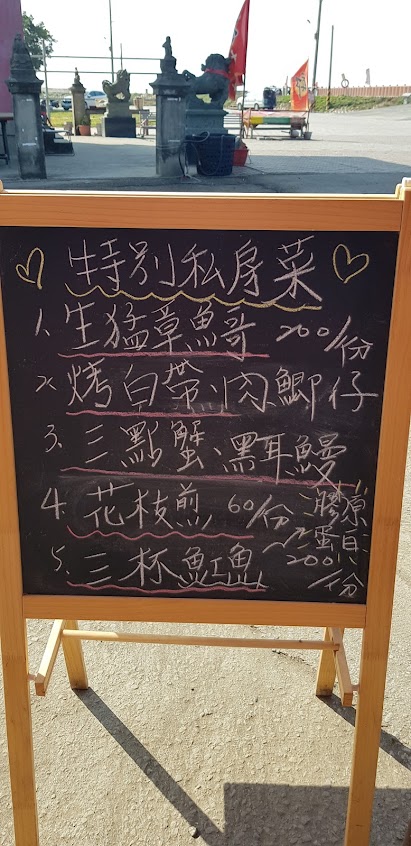 特別私房菜
1、生猛章魚哥 200/份
2、烤白帶、肉鯽仔
3、三點蟹、黑耳鰻
4、花枝煎 60/份
膠原蛋白 200/份
5、三杯魟魚